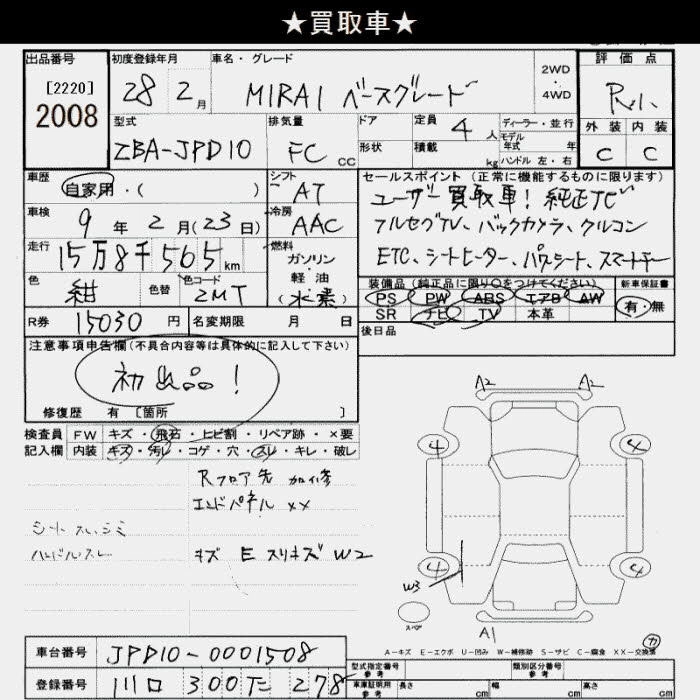 ★買取車★
出品番号
[2220]
2008
初度登録年月
28 2月
車名・グレード
MIRAI ベースグレード
2WD
・
4WD
評価点
外装 内装
C C
型式
ZBA-JPD10
排気量
FC CC
ドア
形状
定員
4人
積載 kg
ディーラー・並行
モデル
年式 年
ハンドル 左・右
車歴
自家用・( )
シフト
AT
車検
9年2月(23日)
冷房
AAC
走行
15万8千565km
燃料
ガソリン
・
軽油
(水素)
色
紺
色替
色コード
2MT
R券 15030円
名変期限 月 日
セールスポイント (正常に機能するものに限ります)
ユーザー買取車! 純正ナビ
フルセグTV、バックカメラ、クルコン
ETC、シートヒーター、パワーシート、スマートキー
装備品 (純正品に限り○をつけてください)
PS PW ABS エアB AW
SR ナビ TV 本革
新車保証書
有・無
後日品
注意事項申告欄(不具合内容等は具体的に記入して下さい)
初出品!
修復歴 有 [箇所 ]
検査員
記入欄
FW キズ・飛石・ヒビ割・リペア跡・×要
内装 キズ・汚レ・コゲ・穴・スレ・キレ・破レ
Rフロア先 加修
エンドパネル ××
シート スレ、シミ
ハンドルスレ
キズ E スリキズ W2
A2 A2
4 4
4 4
W3
スペア
A1
カ
A-キズ E-エクボ U-凹み W-補修跡 S-サビ C-腐食 XX-交換済
車台番号 JPD10-0001508
登録番号 川口 300 て 278
型式指定番号
参考
類別区分番号
参考
車庫証明用
参考
長さ cm 幅 cm 高さ cm